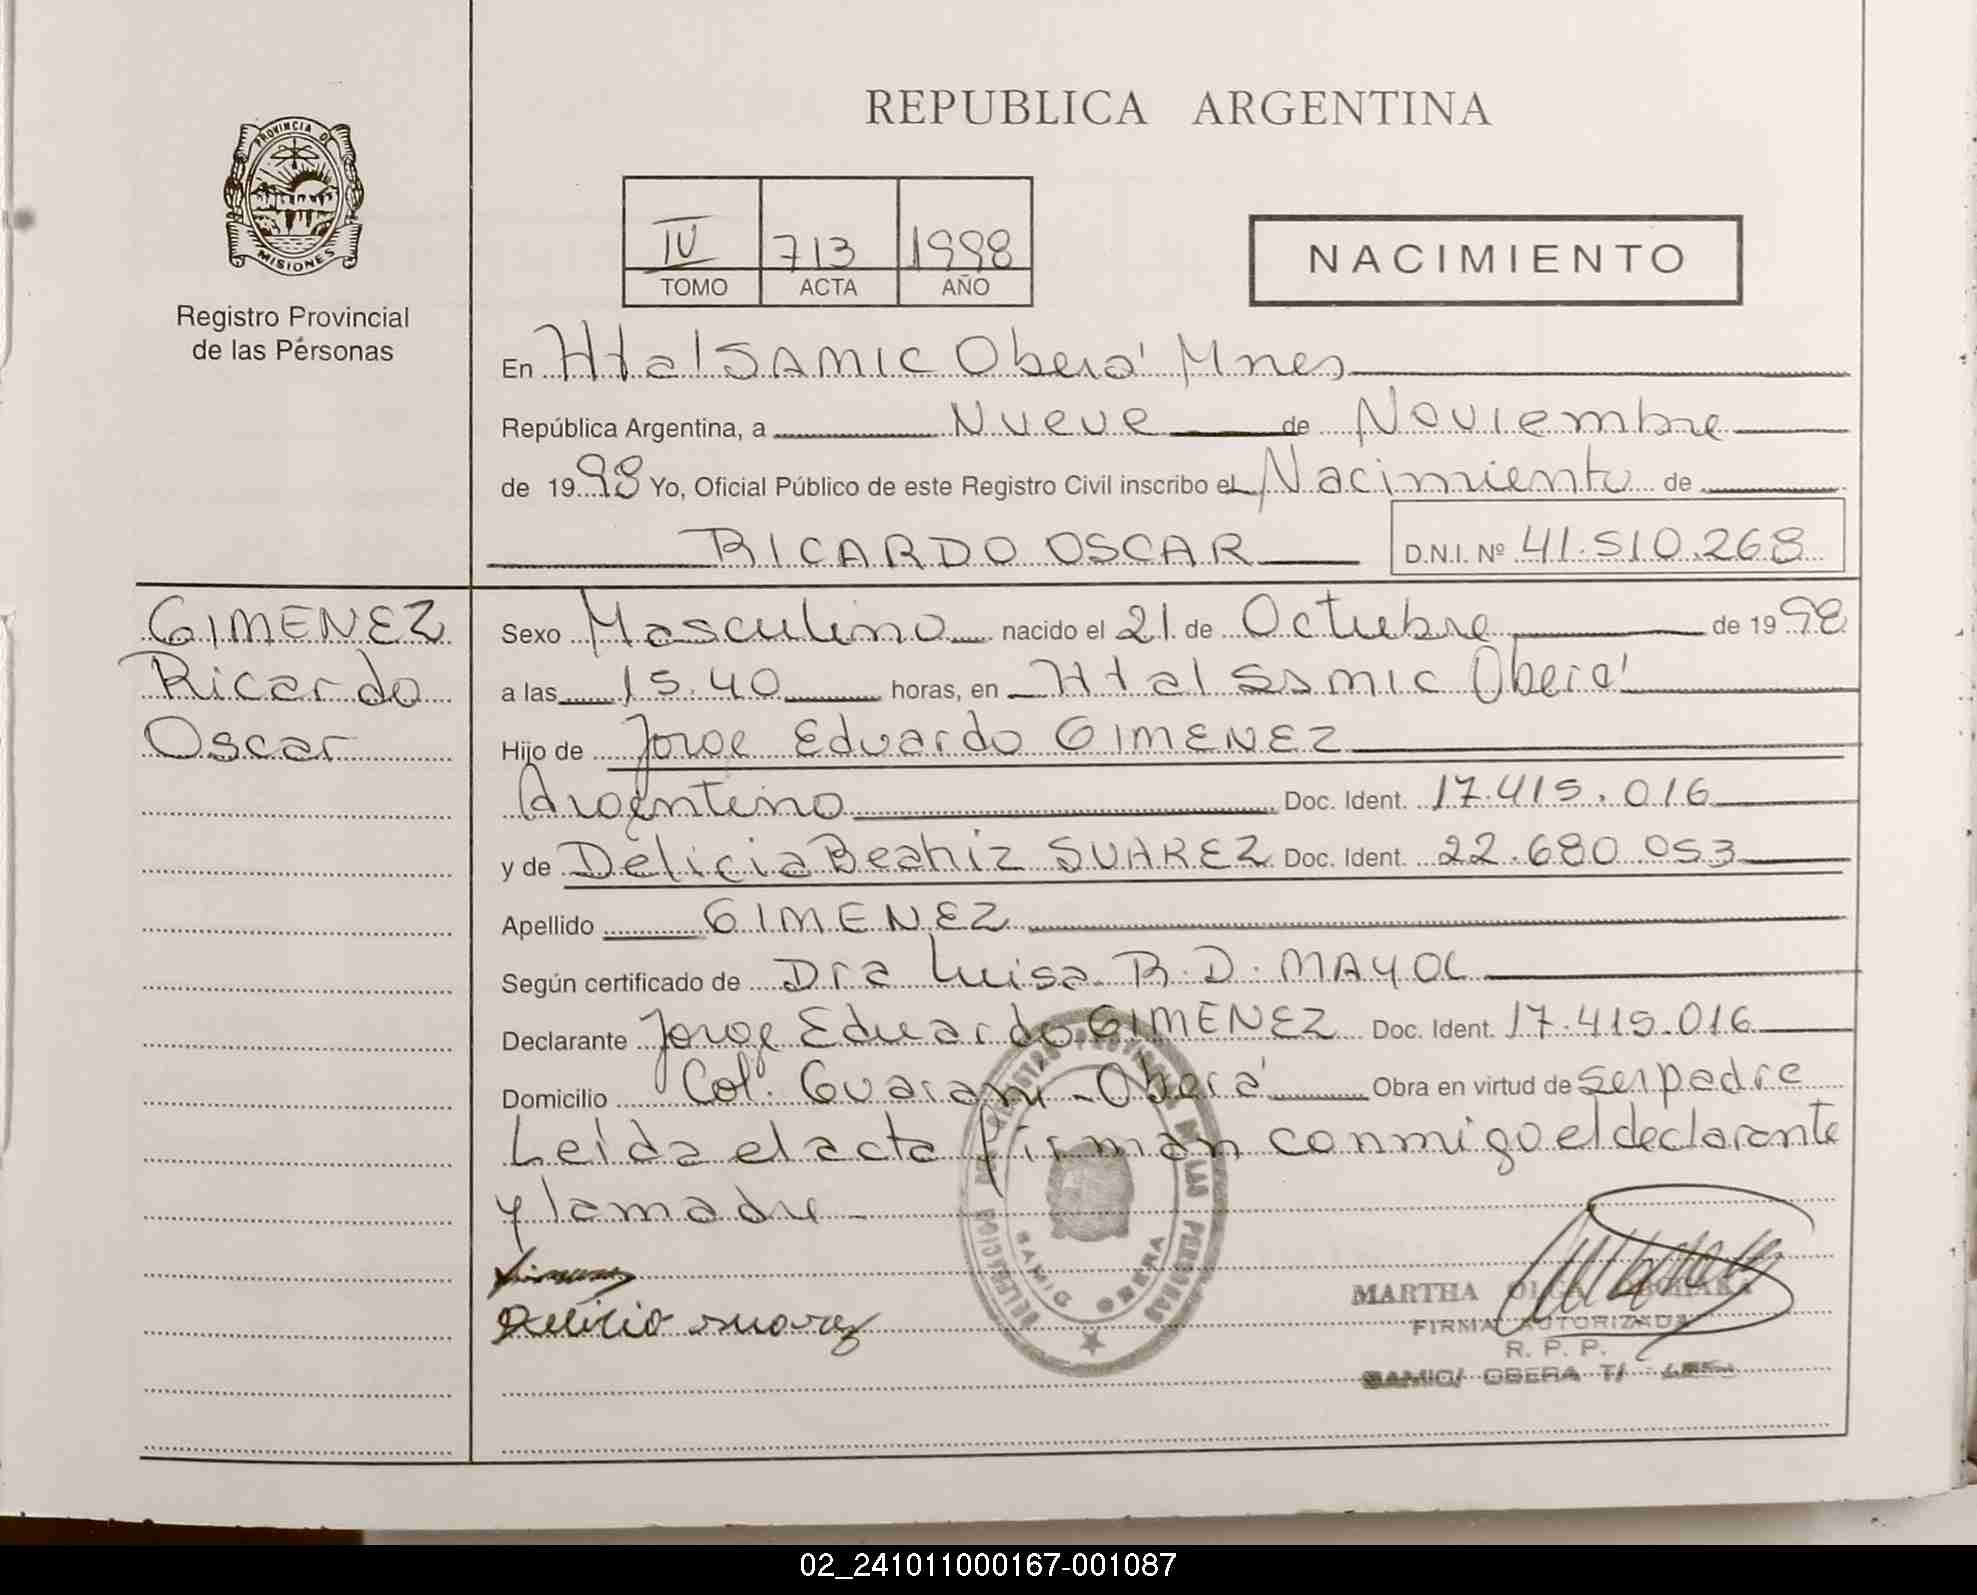 REPUBLICA ARGENTINA
PROVINCIA DE
MISIONES
Registro Provincial
de las Personas
IV 713 1998
TOMO ACTA AÑO
NACIMIENTO
En Htal SAMIC Oberá Mnes
República Argentina, a Nueve de Noviembre
de 1998 Yo, Oficial Público de este Registro Civil inscribo el Nacimiento de
RICARDO OSCAR D.N.I. Nº 41.510.268
GIMENEZ
Ricardo
Oscar
Sexo Masculino nacido el 21 de Octubre de 1998
a las 15.40 horas, en Htal Samic Oberá
Hijo de Jorge Eduardo GIMENEZ
Argentino Doc. Ident. 17.415.016
y de Delicia Beatriz SUAREZ Doc. Ident. 22.680.053
Apellido GIMENEZ
Según certificado de Dra Luisa R.D. MAYOL
Declarante Jorge Eduardo GIMENEZ Doc. Ident. 17.415.016
Domicilio Col. Guarani - Oberá Obra en virtud de ser padre
Leída el acta firman conmigo el declarante
y la madre
Delicio suarez
REGISTRO PROVINCIAL DE LAS PERSONAS
SAMIC OBERA
MARTHA OLGA
FIRMA AUTORIZADA
R. P. P.
SAMIC/ OBERA T/
02_241011000167-001087